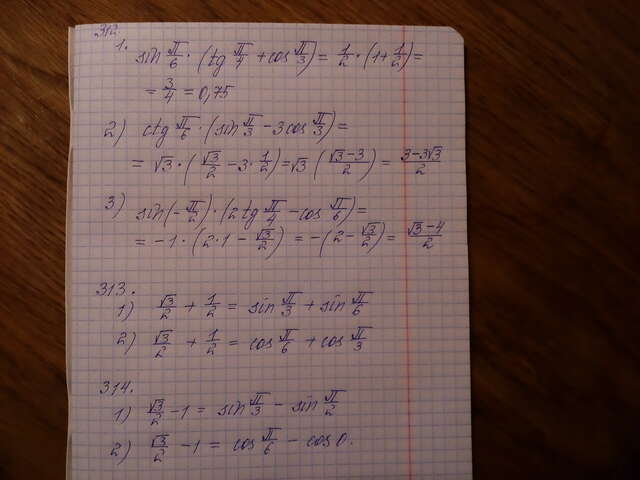 312
1. sin π/6 · (tg π/4 + cos π/3) = 1/2 · (1 + 1/2) =
= 3/4 = 0,75
2) ctg π/6 · (sin π/3 - 3 cos π/3) =
= √3 · (√3/2 - 3 · 1/2) = √3 (√3-3/2) = 3-3√3/2
3) sin(-π/2) · (2 tg π/4 - cos π/6) =
= -1 · (2·1 - √3/2) = -(2 - √3/2) = √3-4/2
313.
1) √3/2 + 1/2 = sin π/3 + sin π/6
2) √3/2 + 1/2 = cos π/6 + cos π/3
314.
1) √3/2 - 1 = sin π/3 - sin π/2
2) √3/2 - 1 = cos π/6 - cos 0.